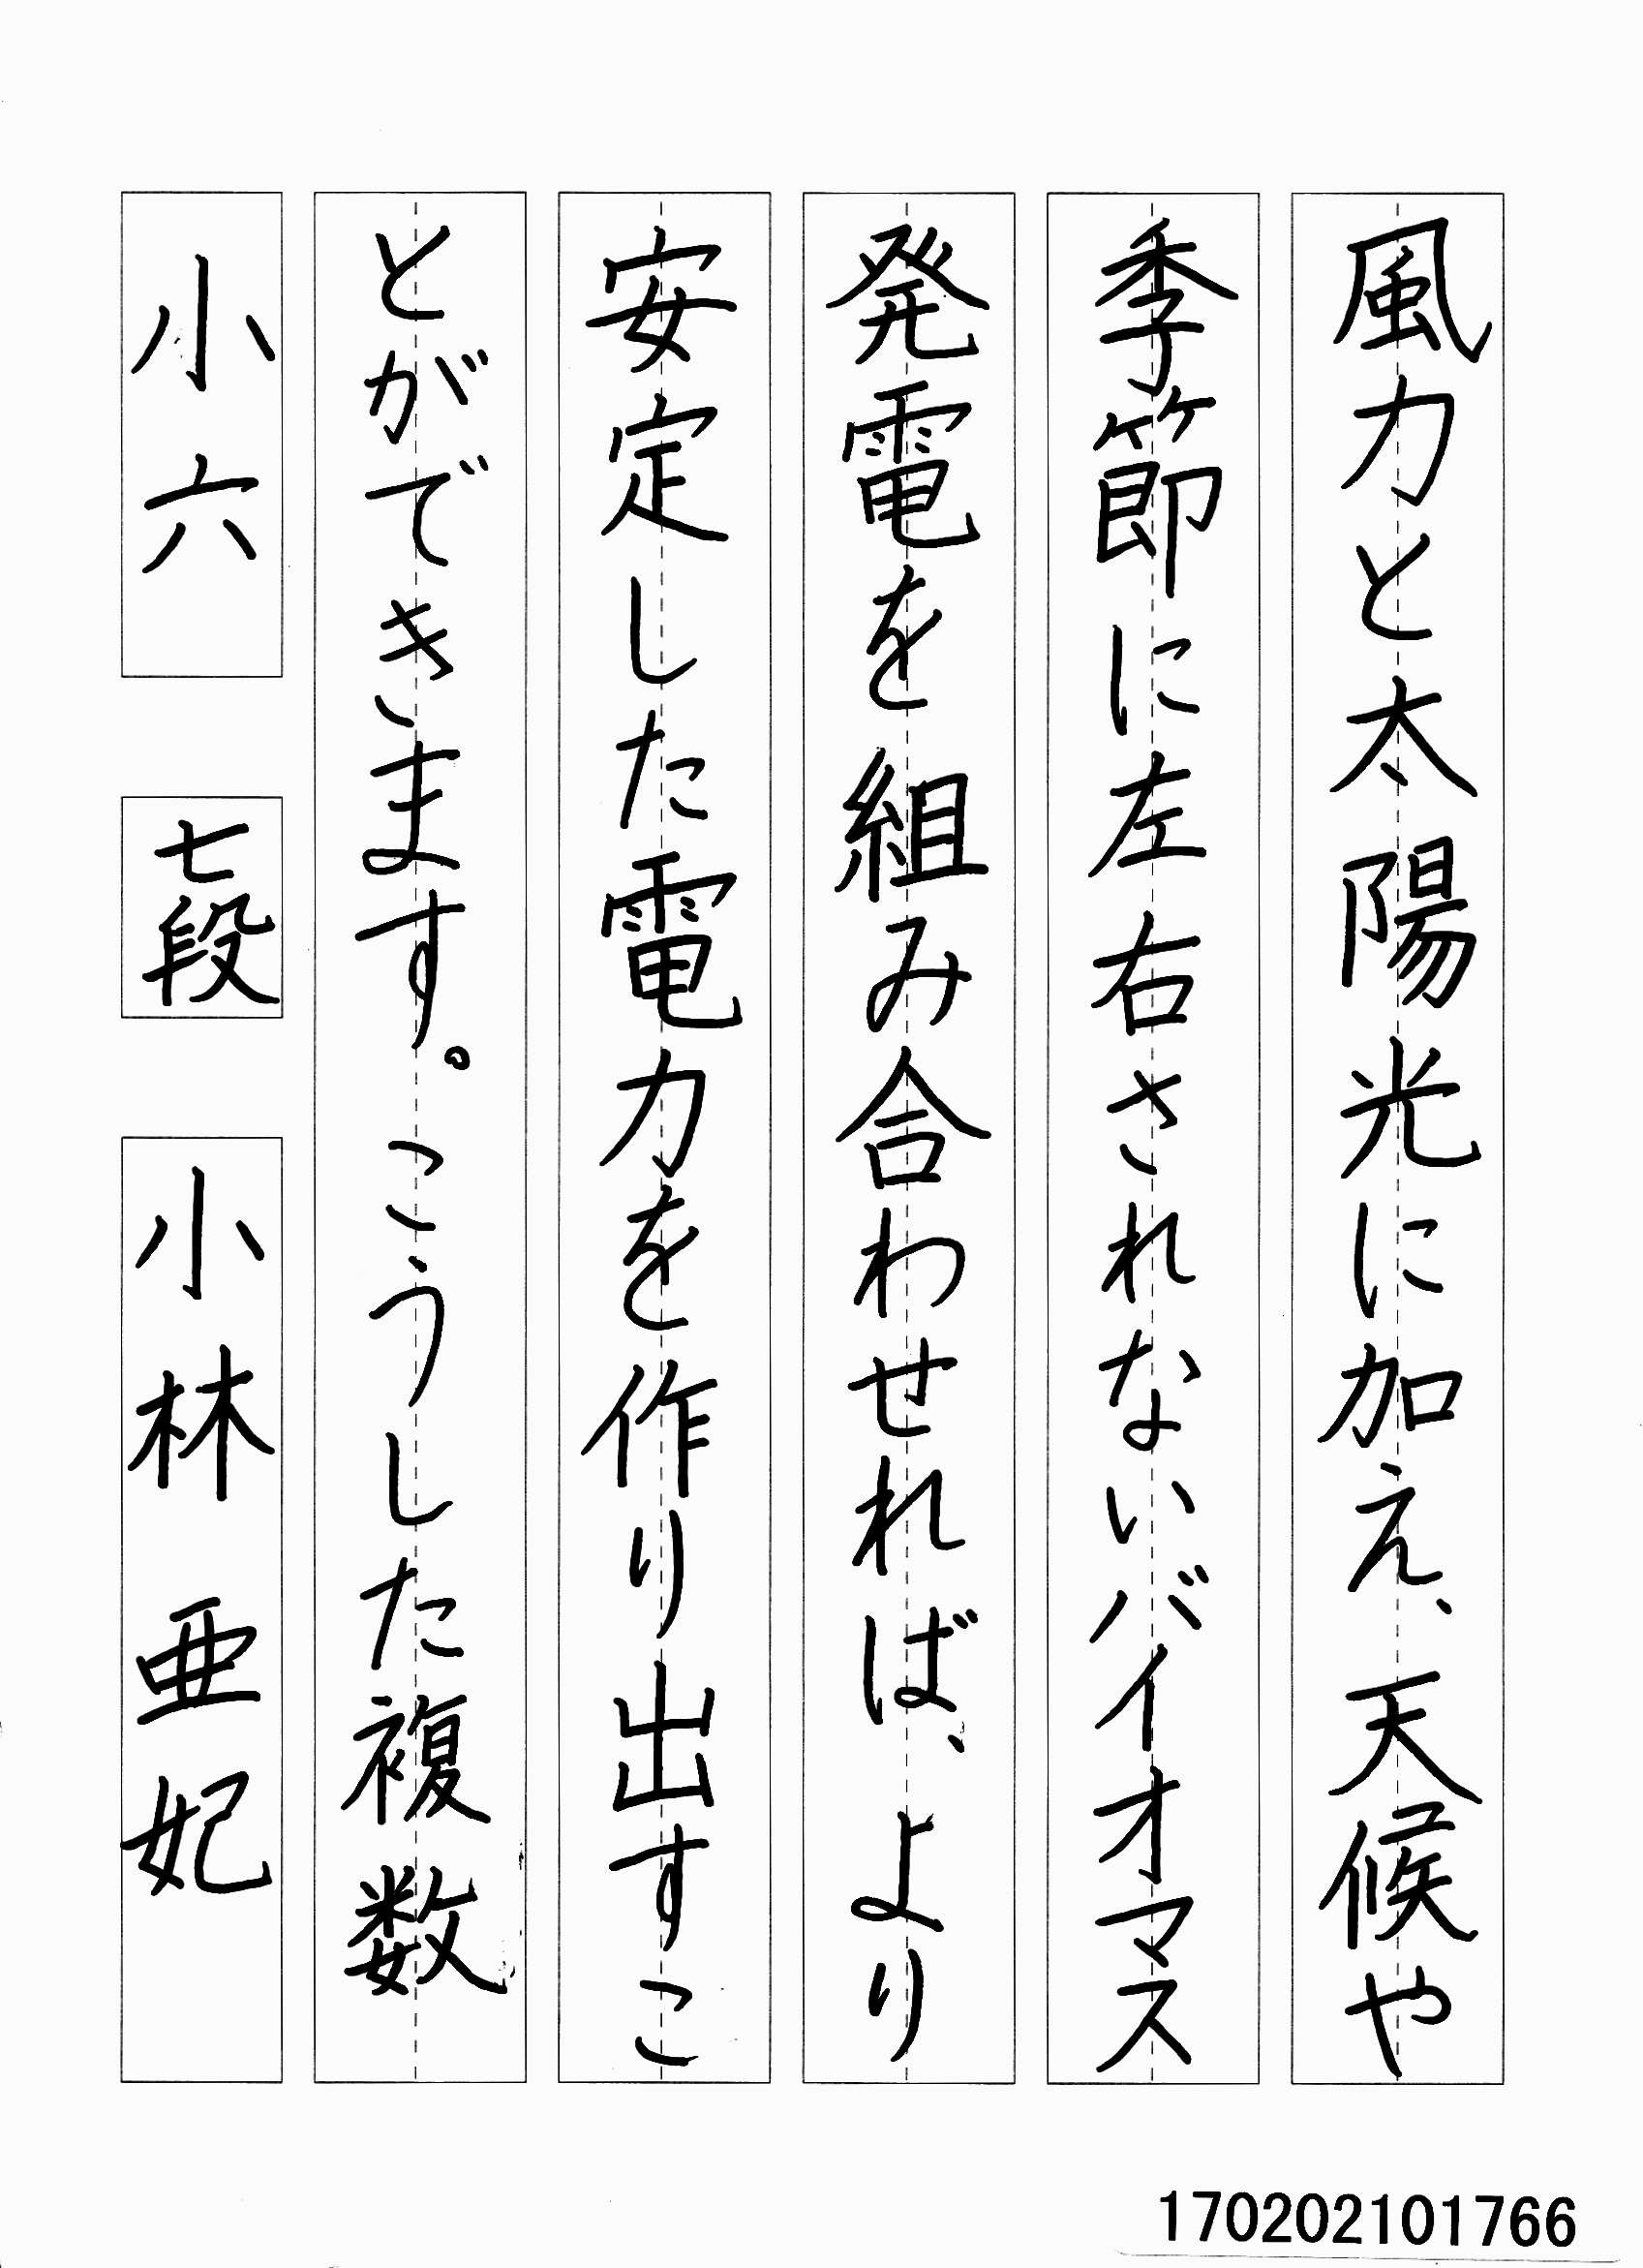 風力と太陽光に加え、天候や
季節に左右されないバイオマス
発電を組み合わせれば、より
安定した電力を作り出すこ
とができます。こうした複数
小六 七段 小林亜妃
170202101766